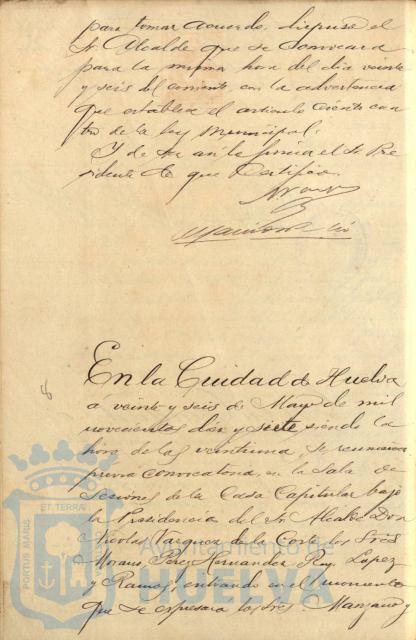 para tomar acuerdo, dispuso el
Sr. Alcalde que se convocara
para la misma hora del dia veinte
y seis del corriente con la advertencia
que establece el articulo ciento cua
tro de la ley Municipal.
Y de ser así lo firma el Sr. Pre
sidente de que Certifico.
8
En la Ciudad de Huelva
á veinte y seis de Mayo de mil
novecientos diez y siete siendo la
hora de las veintiuna, se reunieron
previa convocatoria, en la Sala de
Sesiones de la Casa Capitular bajo
la Presidencia del Sr. Alcalde Don
Nicolas Vazquez de la Corte los Sres
Morano, Perez Hernandez, Lopez
y Ramos, entrando en el momento
que se expresara los Sres. Manzano y
Ayuntamiento de
HUELVA
PORTUS MARIS ET TERRÆ